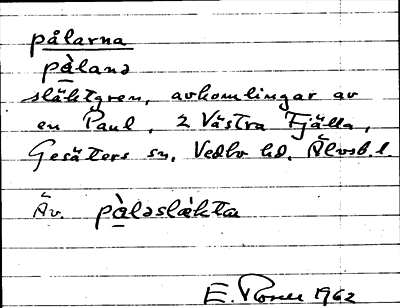 pålarna
pålanə
släktgren, avkomlingar av
en Paul, 2 Västra Fjälla,
Gesäters sn, Vedbo hd, Älvsb. l.
Äv. pàləslækta
E. 1962